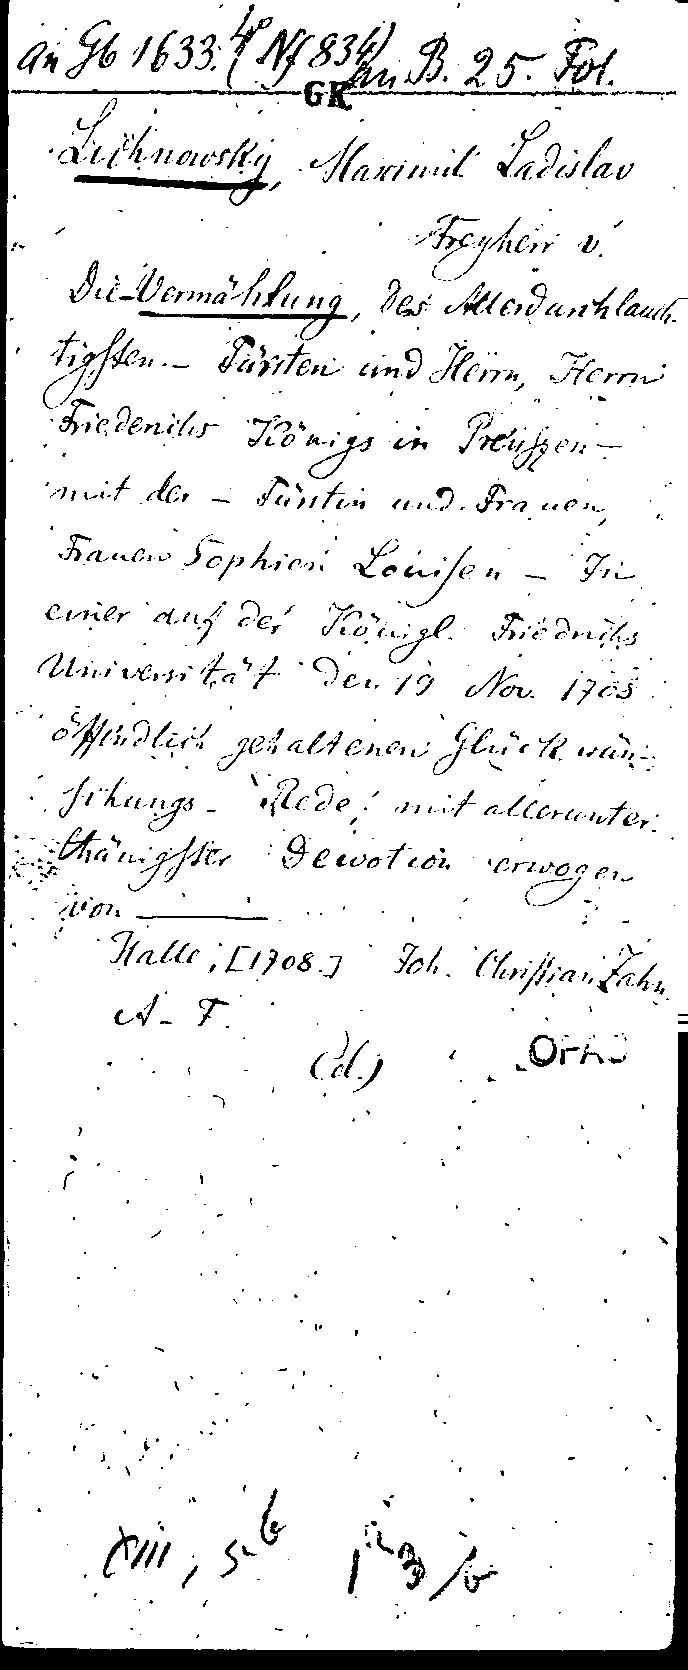 an Gb 1633. 4° (Nf 834) an B. 25. Fol.
GK
Lichnowsky, Maximil. Ladislav
Freyherr v.
Die Vermählung, des Allerdurchlauch-
tigsten. – Fürsten und Herrn, Herrn
Friederichs Königs in Preuszen –
mit der – Fürstin und Frauen,
Frauen Sophien Louisen – In
einer auf der Königl. Friedrichs
Universität den 19 Nov. 1708
öffendlich gehaltenen Glückwün-
schungs- Rede, mit allerunter-
thänigster Devotion erwogen
von ———
Halle, [1708.] Joh. Christian Zahn.
A – F.
(d.)
XIII, 5